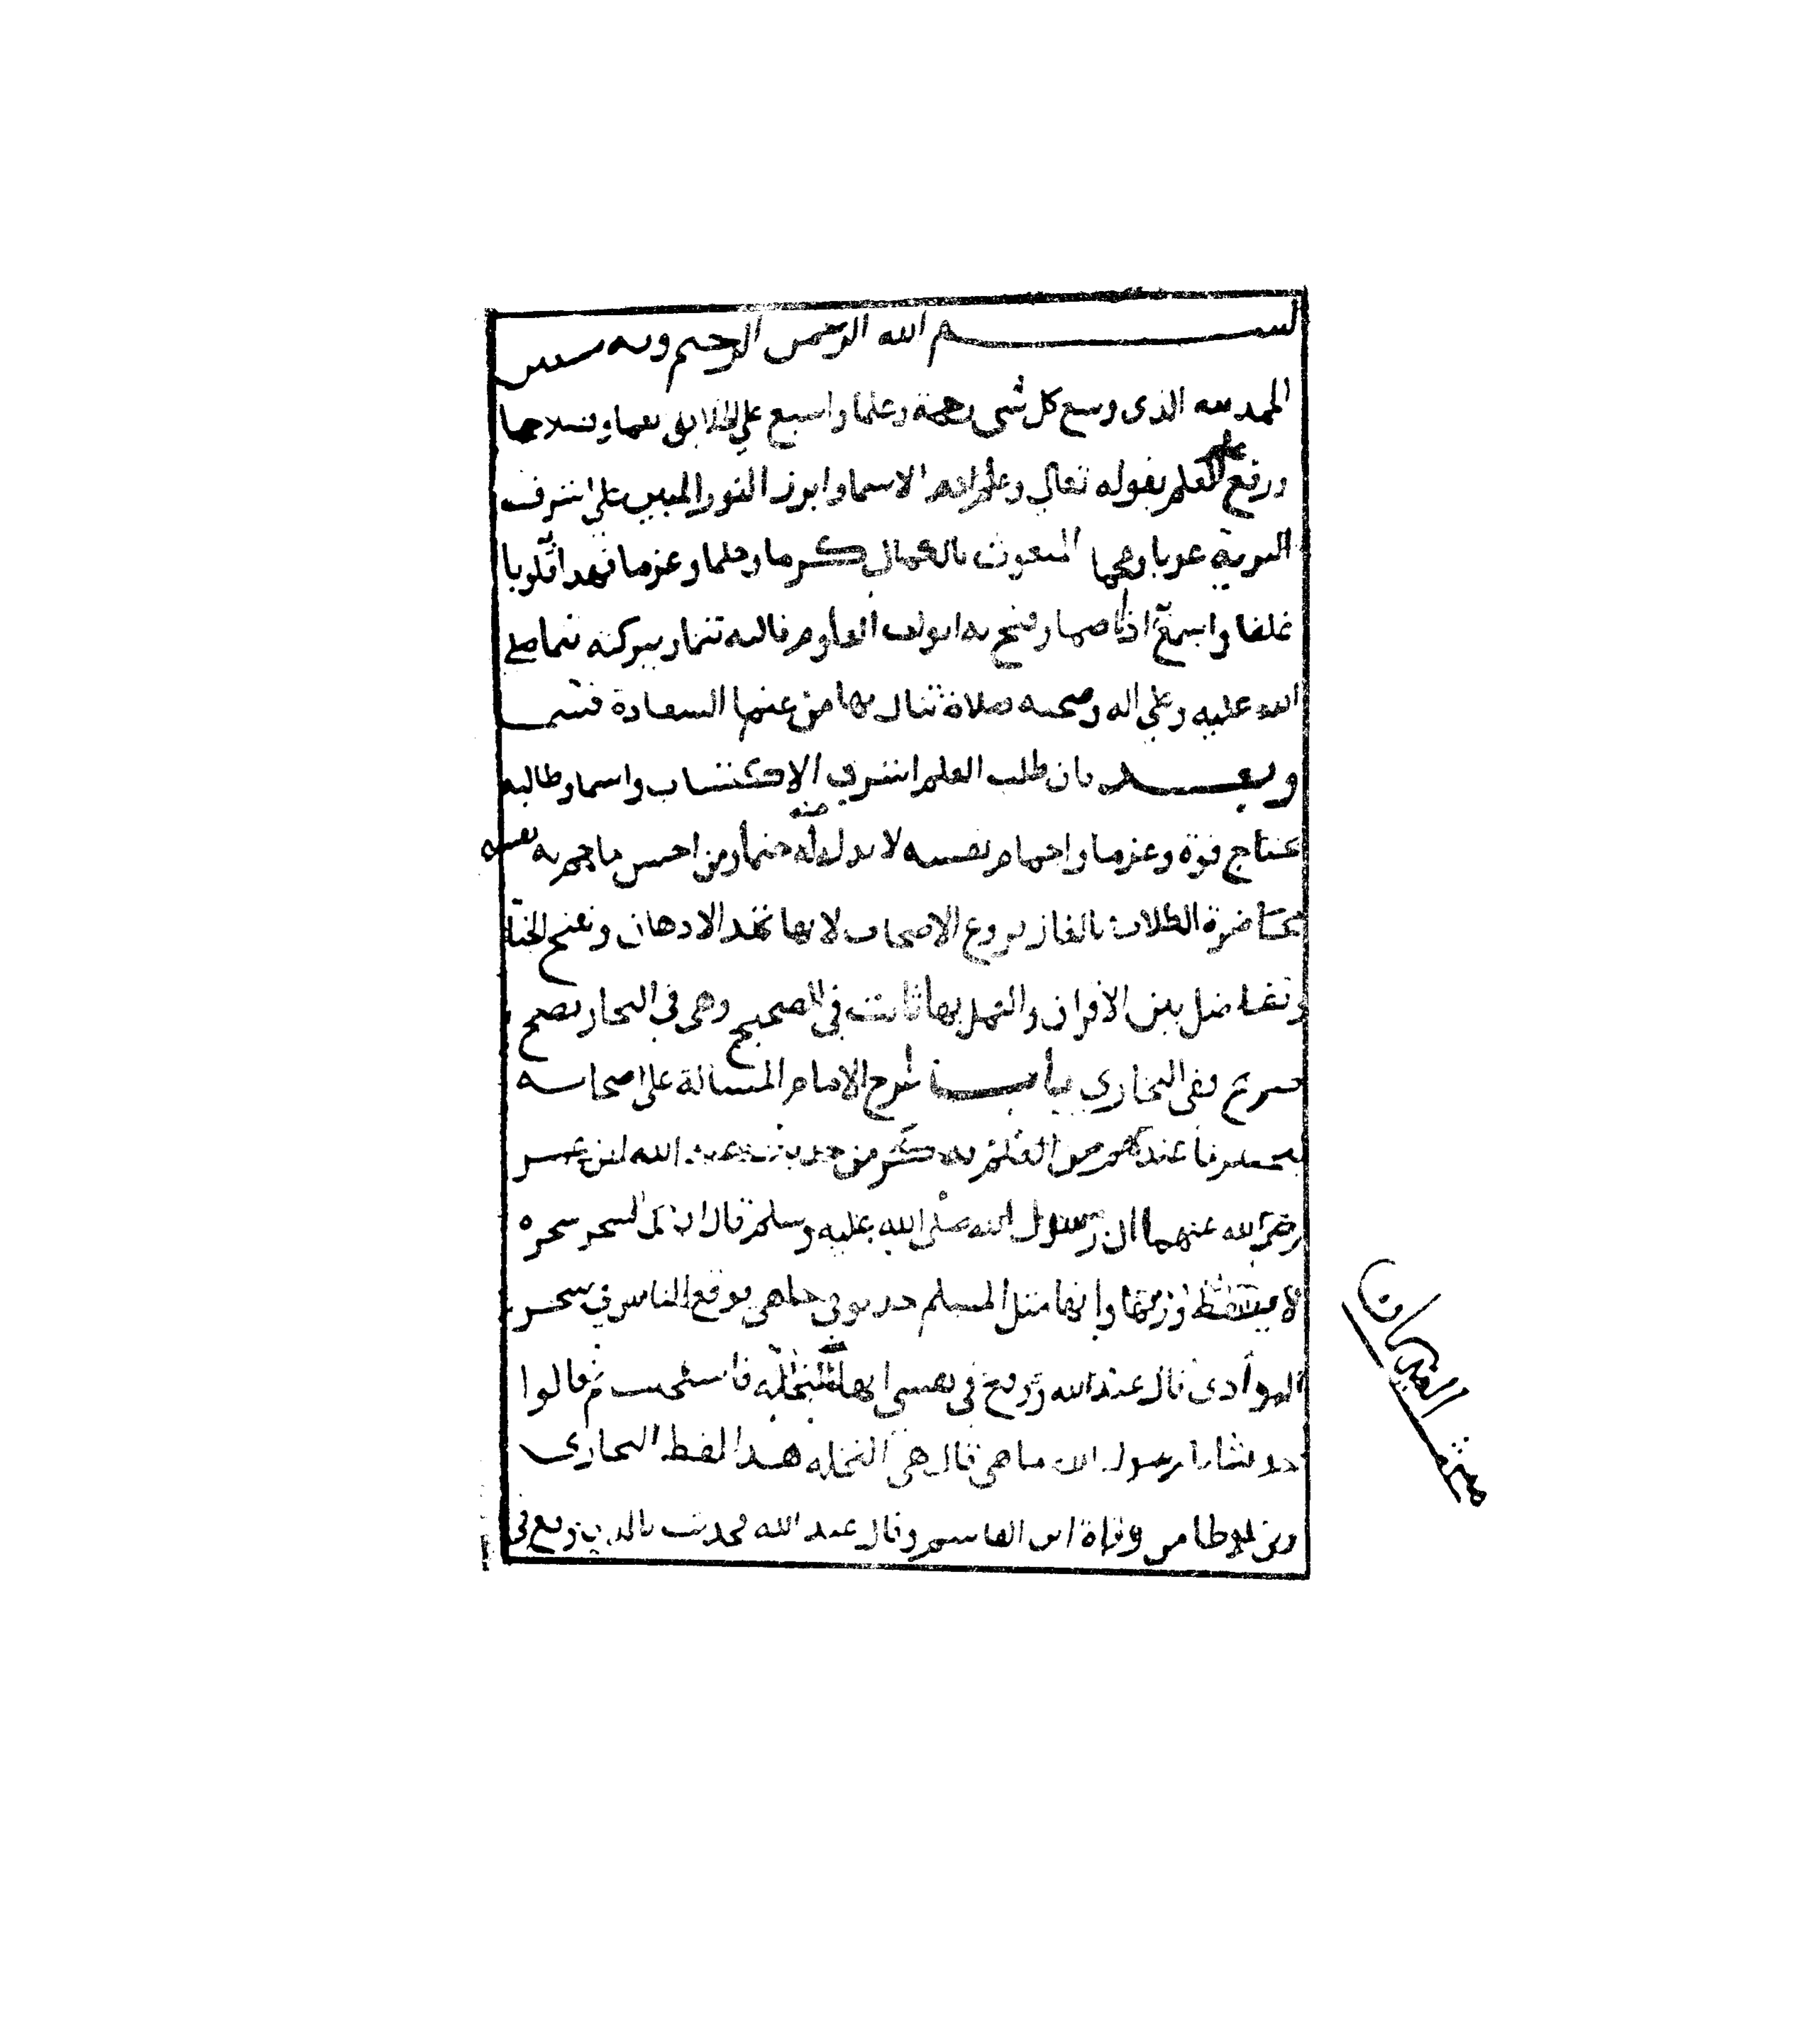 بســـم الله الرحمن الرحيم وبه نستعين
الحمد لله الذى وسع كل شى رحمة وعلما واسبغ على الخلايق نعما
ورفع العلم بقوله تعالى وعلم ادم الاسما وابرز النور المبين على اشرف
البرية عربا وعجما المنعوت بالكمال كرما وحلما وعزما فهدا قلوبا
غلفا واسمع اذانا صما وفتح به ابواب العلوم ببركته صلى
الله عليه وعلى اله وصحبه صلاة تنال بها من عنيها السعادة قسما
وبعـــد فان طلب العلم اشرف الاكتساب واسما وطالبه
يحتاج قوة وعزما واجمام نفسه لا بد له منه حتما ومن احسن ما يجم به نفسه
محاضرة الطلاب بالغاز فروع الاصحاب لانها تحد الادهان وتفتح
وتفاضل بين الاقران والعمل بها ثابت فى الصحيح وهى فى البخار نصح
صريح ففى البخارى باب طرح الامام المسالة على اصحابه
ما عندهم من العلم من حديث عبد الله ابن عمر
رضى الله عنهما ان رسول الله صلى الله عليه وسلم قال ان من الشجر شجره
لا يسقط ورقها وانها مثل المسلم حدثونى ما هى فوقع الناس فى شجر
البوادى قال عبد الله ووقع فى نفسى انها النخله فاستحييت ثم قالوا
حدثنا يا رسول الله ما هى قال هى النخله هذا لفظ البخارى
ابن القاسم وقال عبد الله فحدثت بالذى وقع فى